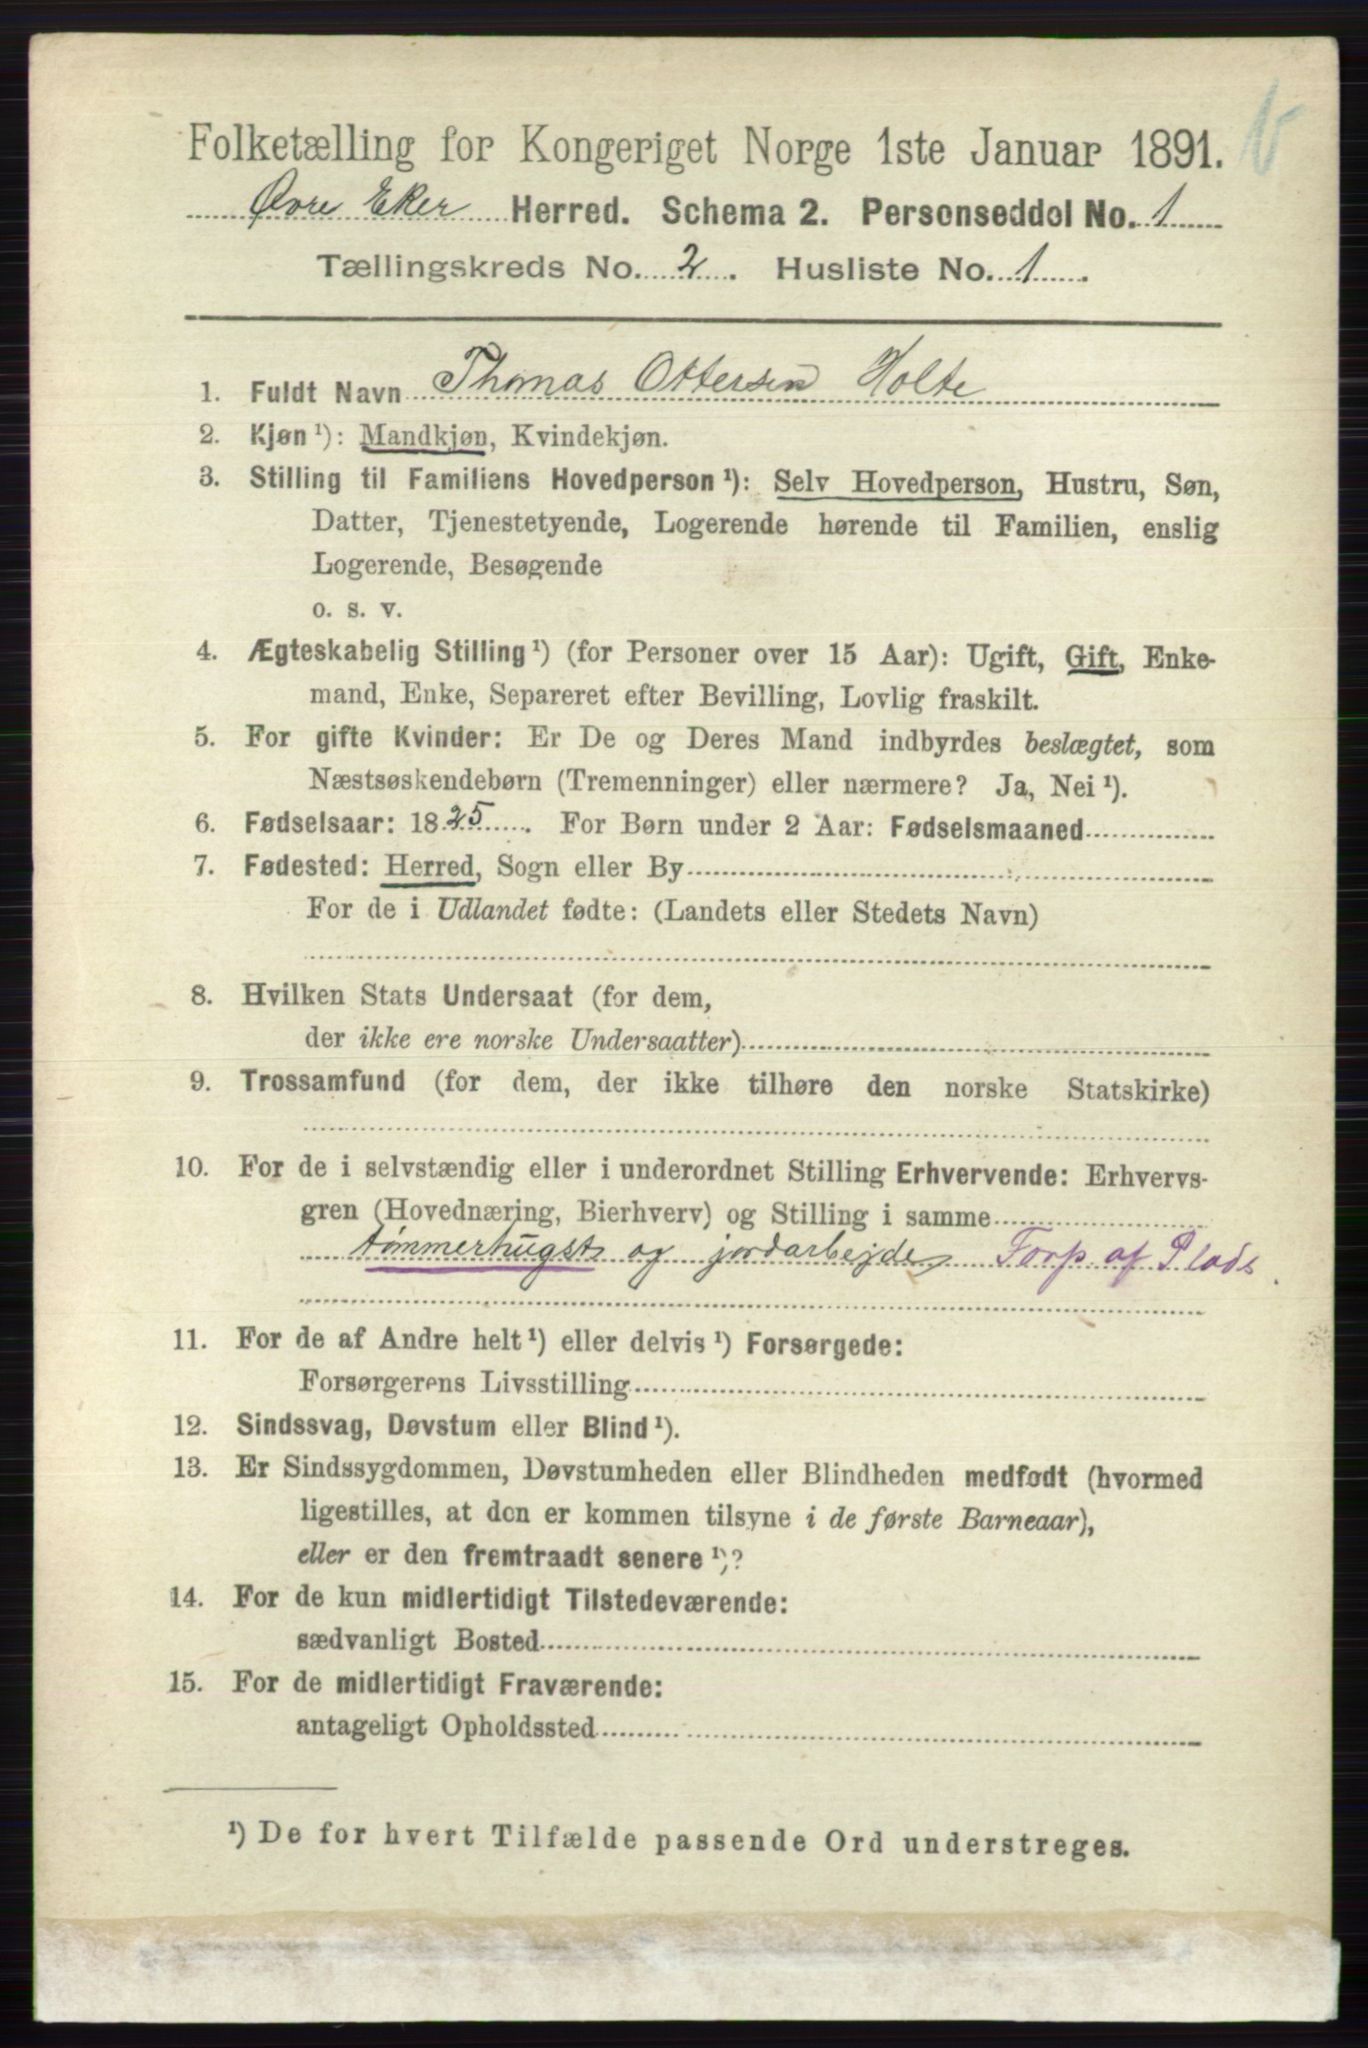 Folketælling for Kongeriget Norge 1ste Januar 1891.
Øvre Eker Herred. Schema 2. Personseddel No. 1
Tællingskreds No. 2. Husliste No. 1
1. Fuldt Navn Thomas Ottersen Holte
2. Kjøn ¹): Mandkjøn, Kvindekjøn.
3. Stilling til Familiens Hovedperson ¹): Selv Hovedperson, Hustru, Søn,
Datter, Tjenestetyende, Logerende hørende til Familien, enslig
Logerende, Besøgende
o. s. v.
4. Ægteskabelig Stilling ¹) (for Personer over 15 Aar): Ugift, Gift, Enke-
mand, Enke, Separeret efter Bevilling, Lovlig fraskilt.
5. For gifte Kvinder: Er De og Deres Mand indbyrdes beslægtet, som
Næstsøskendebørn (Tremenninger) eller nærmere? Ja, Nei ¹).
6. Fødselsaar: 1825. For Børn under 2 Aar: Fødselsmaaned
7. Fødested: Herred, Sogn eller By
For de i Udlandet fødte: (Landets eller Stedets Navn)
8. Hvilken Stats Undersaat (for dem,
der ikke ere norske Undersaatter)
9. Trossamfund (for dem, der ikke tilhøre den norske Statskirke)
10. For de i selvstændig eller i underordnet Stilling Erhvervende: Erhvervs-
gren (Hovednæring, Bierhverv) og Stilling i samme
tømmerhugst og jordarbejde Forp. af Plads.
11. For de af Andre helt ¹) eller delvis ¹) Forsørgede:
Forsørgerens Livsstilling
12. Sindssvag, Døvstum eller Blind ¹).
13. Er Sindssygdommen, Døvstumheden eller Blindheden medfødt (hvormed
ligestilles, at den er kommen tilsyne i de første Barneaar),
eller er den fremtraadt senere ¹)?
14. For de kun midlertidigt Tilstedeværende:
sædvanligt Bosted
15. For de midlertidigt Fraværende:
antageligt Opholdssted
¹) De for hvert Tilfælde passende Ord understreges.